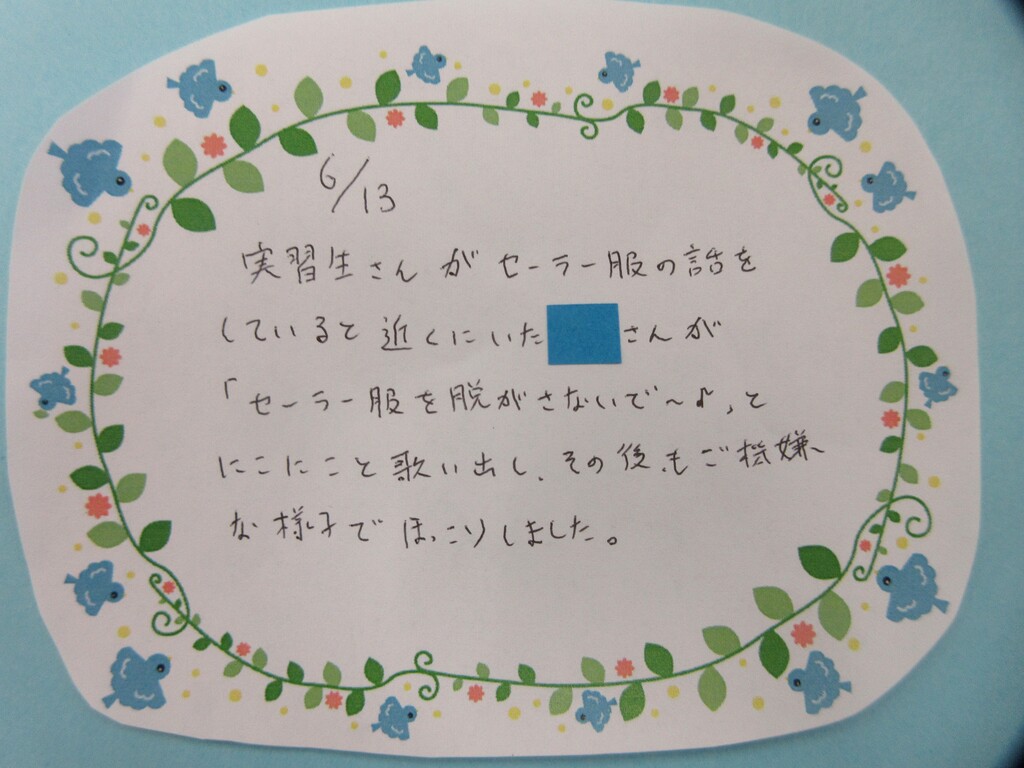 6/13
実習生さんがセーラー服の話を
していると近くにいた さんが
「セーラー服を脱がさないで～♪」と
にこにこと歌い出し、その後もご機嫌
な様子でほっこりしました。